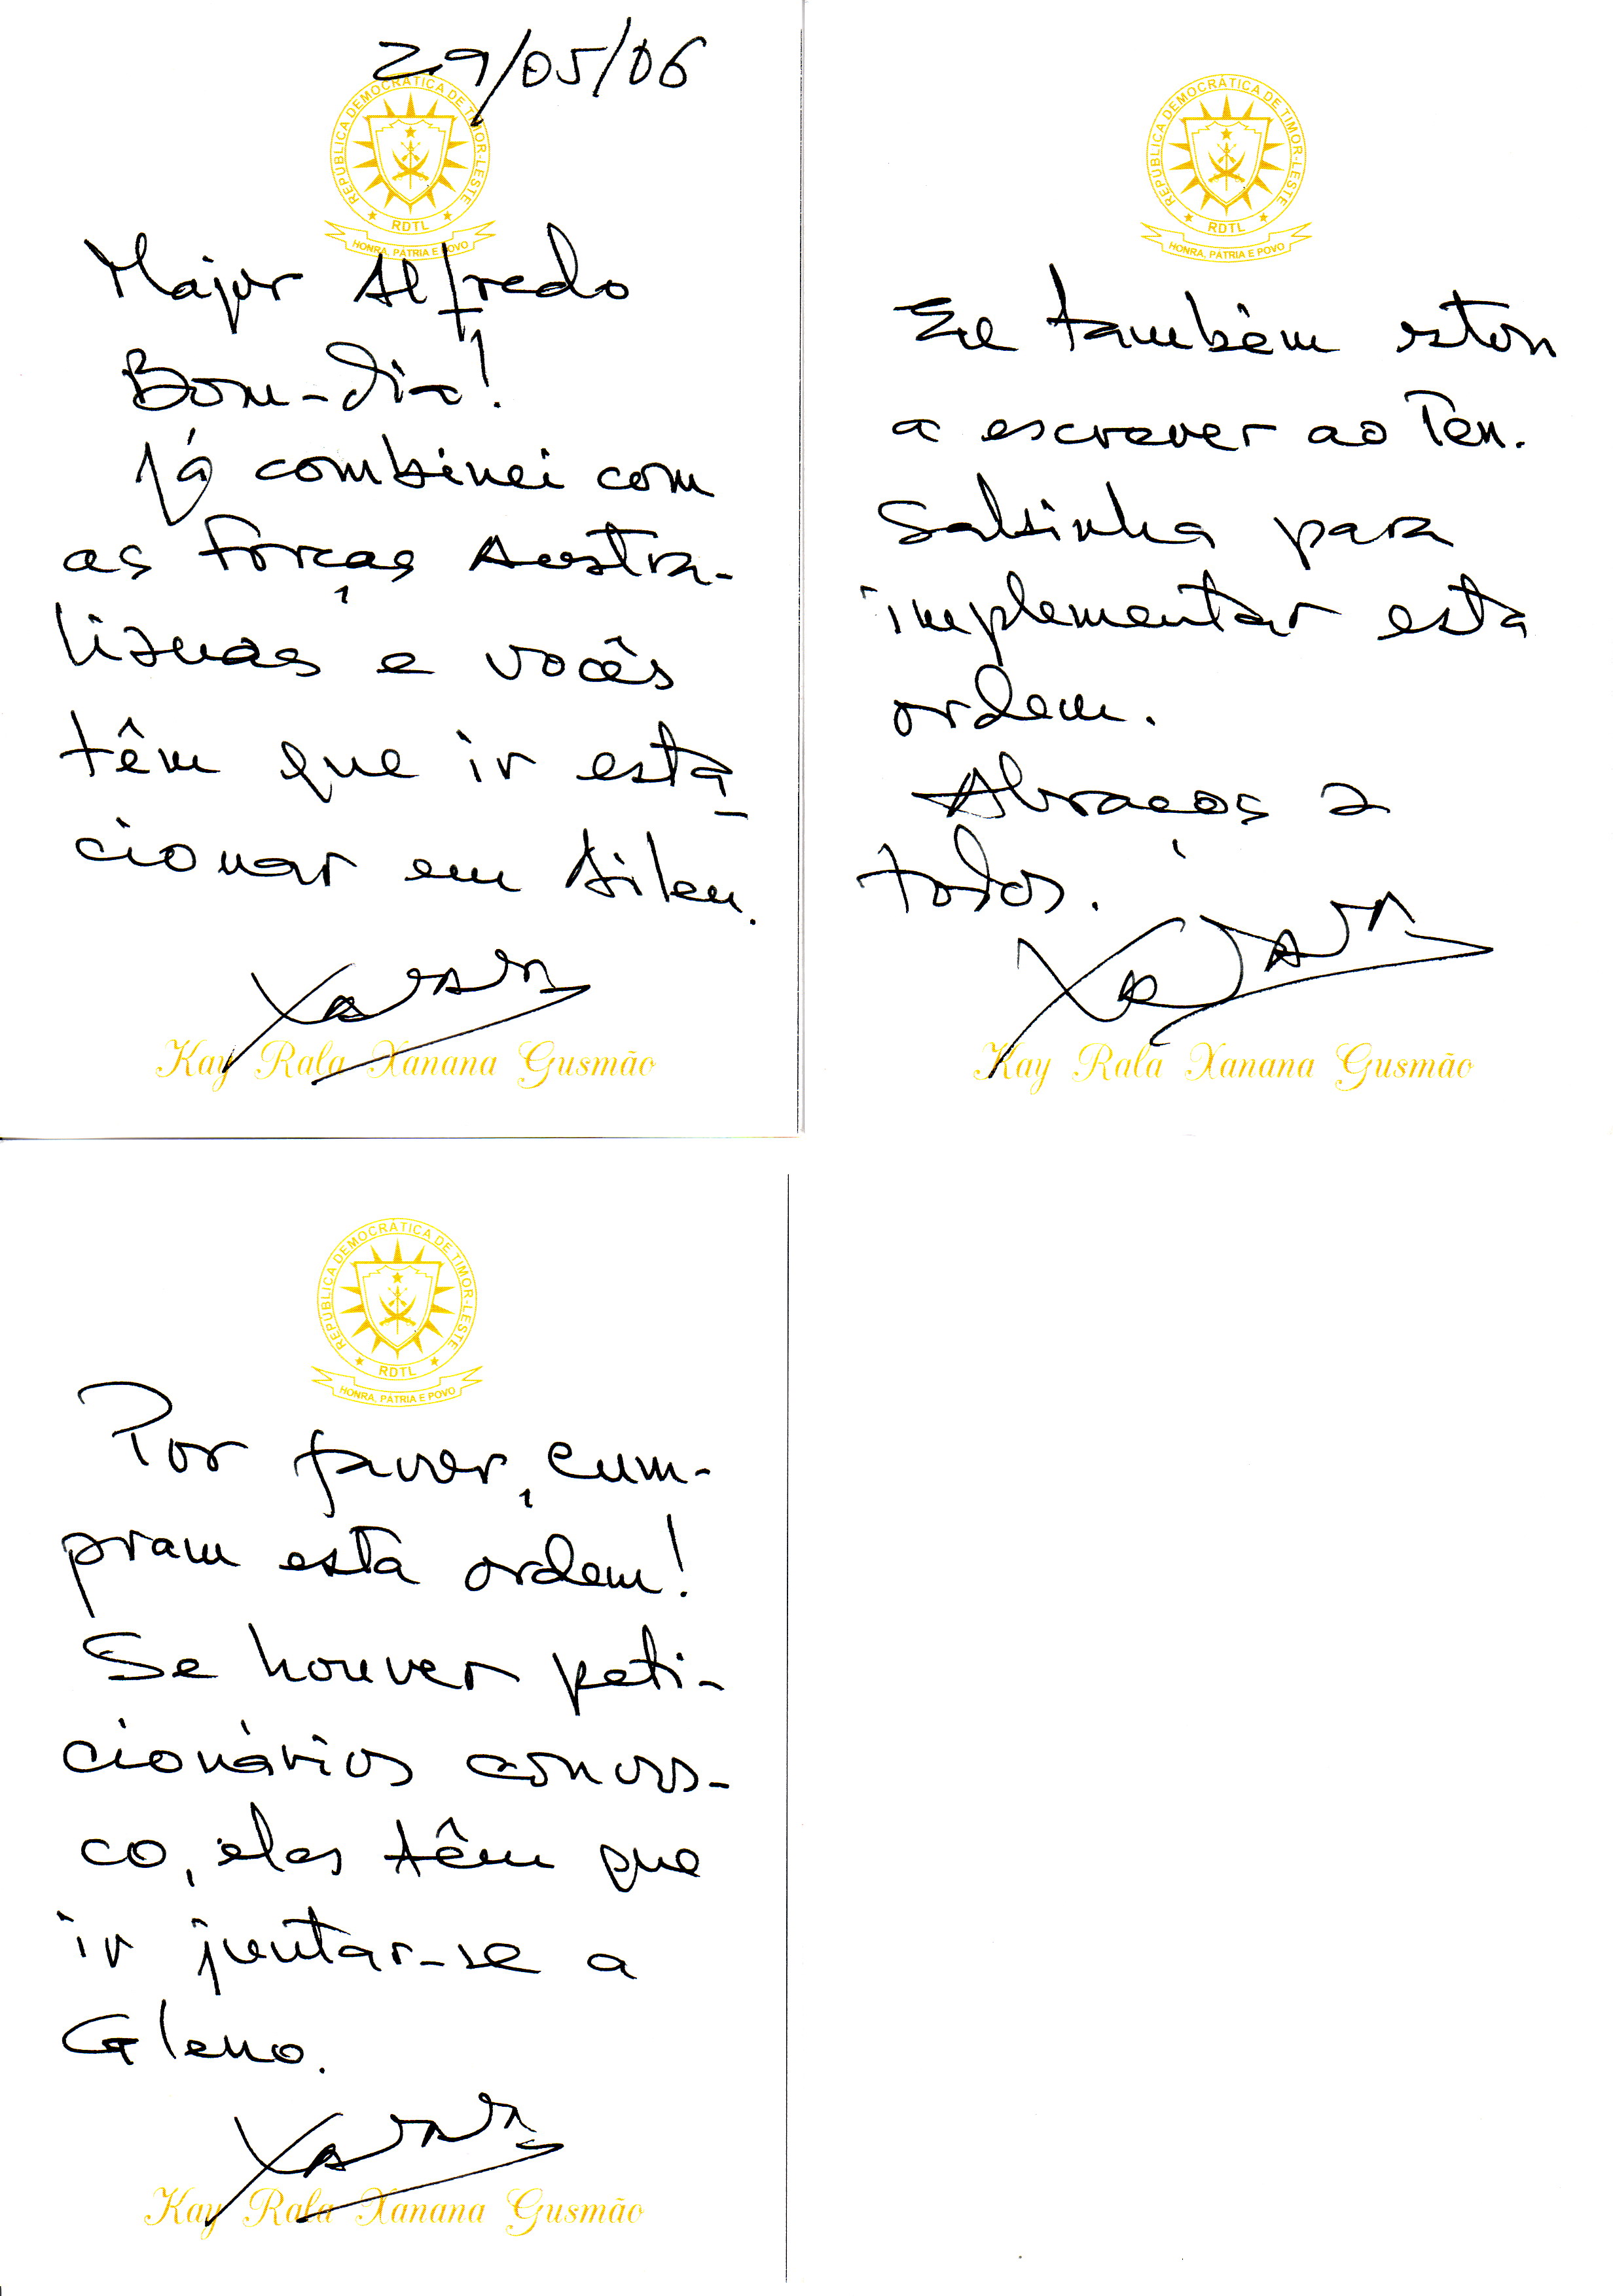 29/05/06
REPÚBLICA DEMOCRÁTICA DE TIMOR-LESTE
RDTL
HONRA, PÁTRIA E POVO
Major Alfredo
Bom-dia!
Já combinei com
as forças Austra-
lianas e vocês
têm que ir esta-
cionar em Aileu.
Xanana
Kay Rala Xanana Gusmão
REPÚBLICA DEMOCRÁTICA DE TIMOR-LESTE
RDTL
HONRA, PÁTRIA E POVO
Eu também estou
a escrever ao Ten.
Salsinha para
implementar esta
ordem.
Abraços a
todos.
Xanana
Kay Rala Xanana Gusmão
REPÚBLICA DEMOCRÁTICA DE TIMOR-LESTE
RDTL
HONRA, PÁTRIA E POVO
Por favor, cum-
pram esta ordem!
Se houver peti-
cionários convos-
co, eles têm que
ir juntar-se a
Gleno.
Xanana
Kay Rala Xanana Gusmão